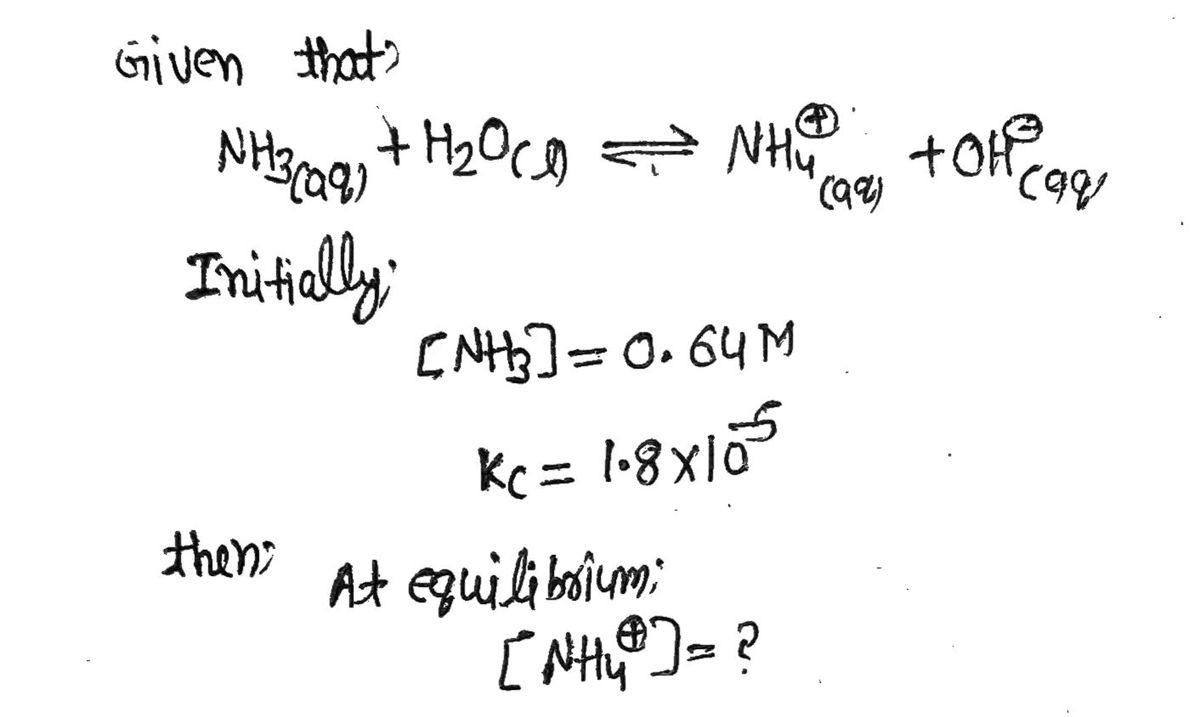 Given that;
NH₃(aq) + H₂O(l) ⇌ NH₄⊕(aq) + OH⊖(aq)
Initially;
[NH₃] = 0.64 M
Kc = 1.8 × 10⁻⁵
then;
At equilibrium;
[NH₄⊕] = ?